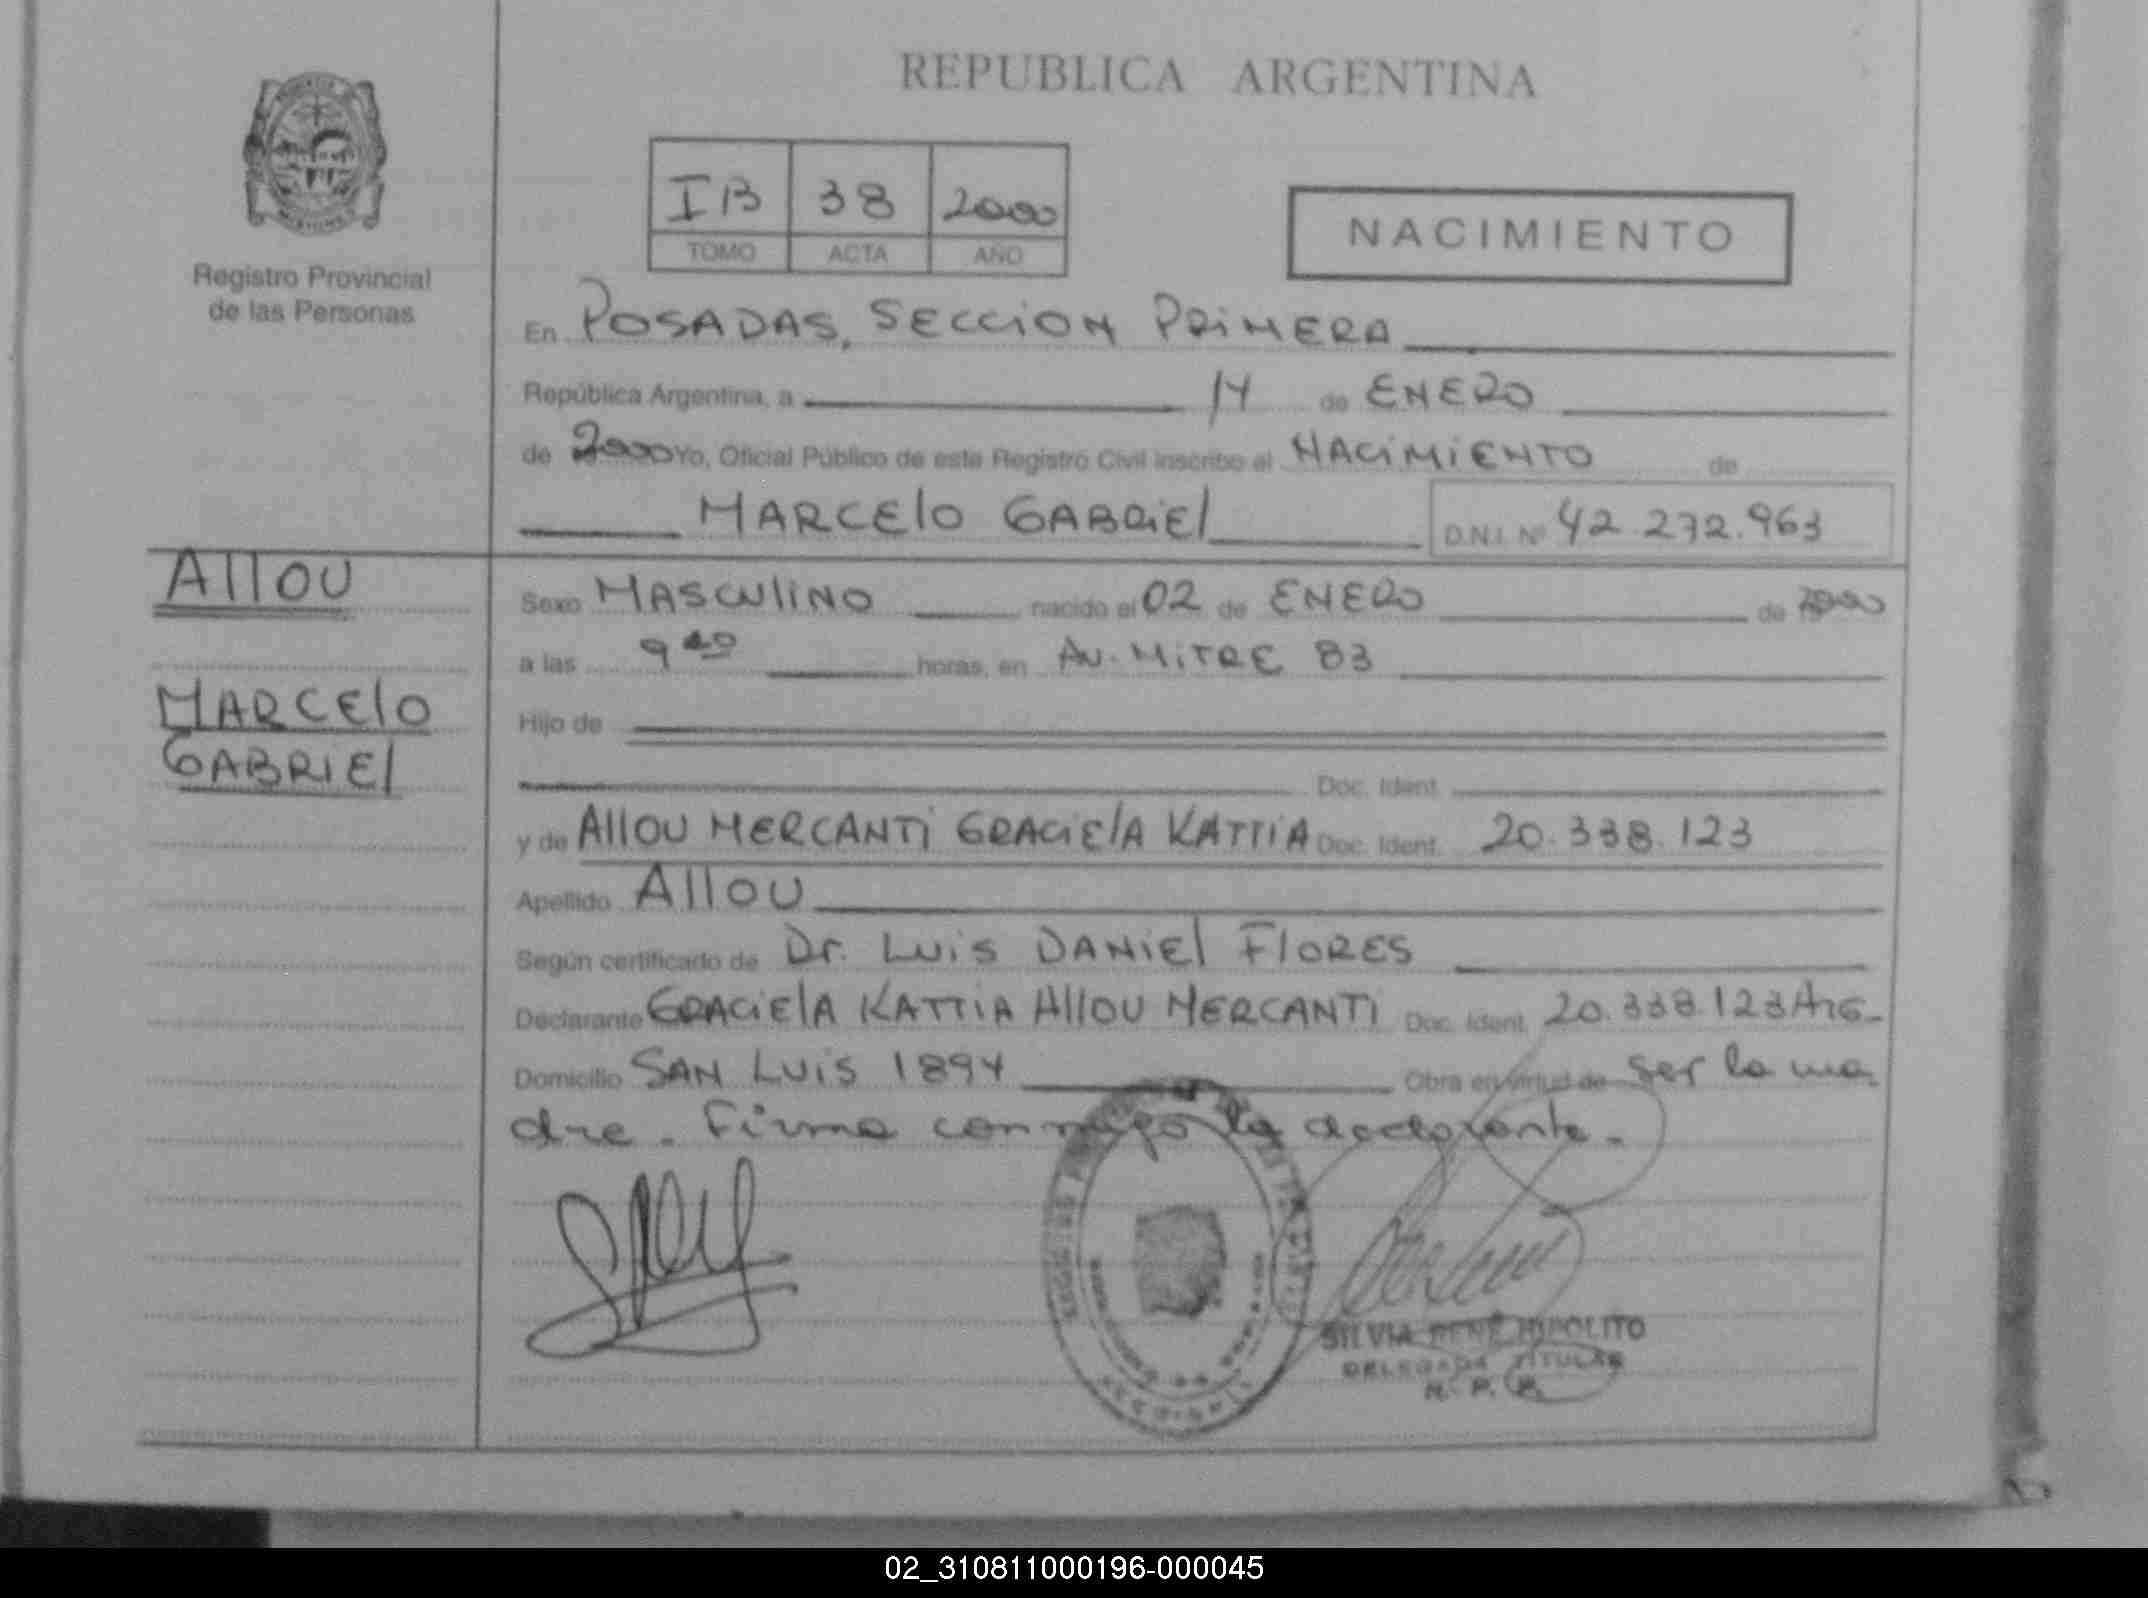 REPUBLICA ARGENTINA
IB 38 2000
TOMO ACTA AÑO
NACIMIENTO
Registro Provincial
de las Personas
En POSADAS, SECCION PRIMERA
República Argentina, a 14 de ENERO
de 2000 Yo, Oficial Público de este Registro Civil inscribo el NACIMIENTO de
MARCElO GABRiEl D.N.I. Nº 42.272.963
AllOU
MARCElO
GABRIEl
Sexo MASCUliNO nacido el 02 de ENERO de 2000
a las 9 horas, en AV. MiTRE 83
Hijo de
Doc. Ident.
y de AllOU MERCANTi GRACiElA KATTiA Doc. Ident. 20.338.123
Apellido AllOU
Según certificado de Dr. LUiS DANiEl FlORES
Declarante GRACiElA KATTiA AllOU MERCANTi Doc. Ident. 20.338.123 ARG.
Domicilio SAN LUiS 1894 Obra en virtud de ser la ma
dre. Firma conmigo la declarante.
SILVIA RENÉ HIPOLITO
DELEGADA TITULAR
R. P. P.
02_310811000196-000045